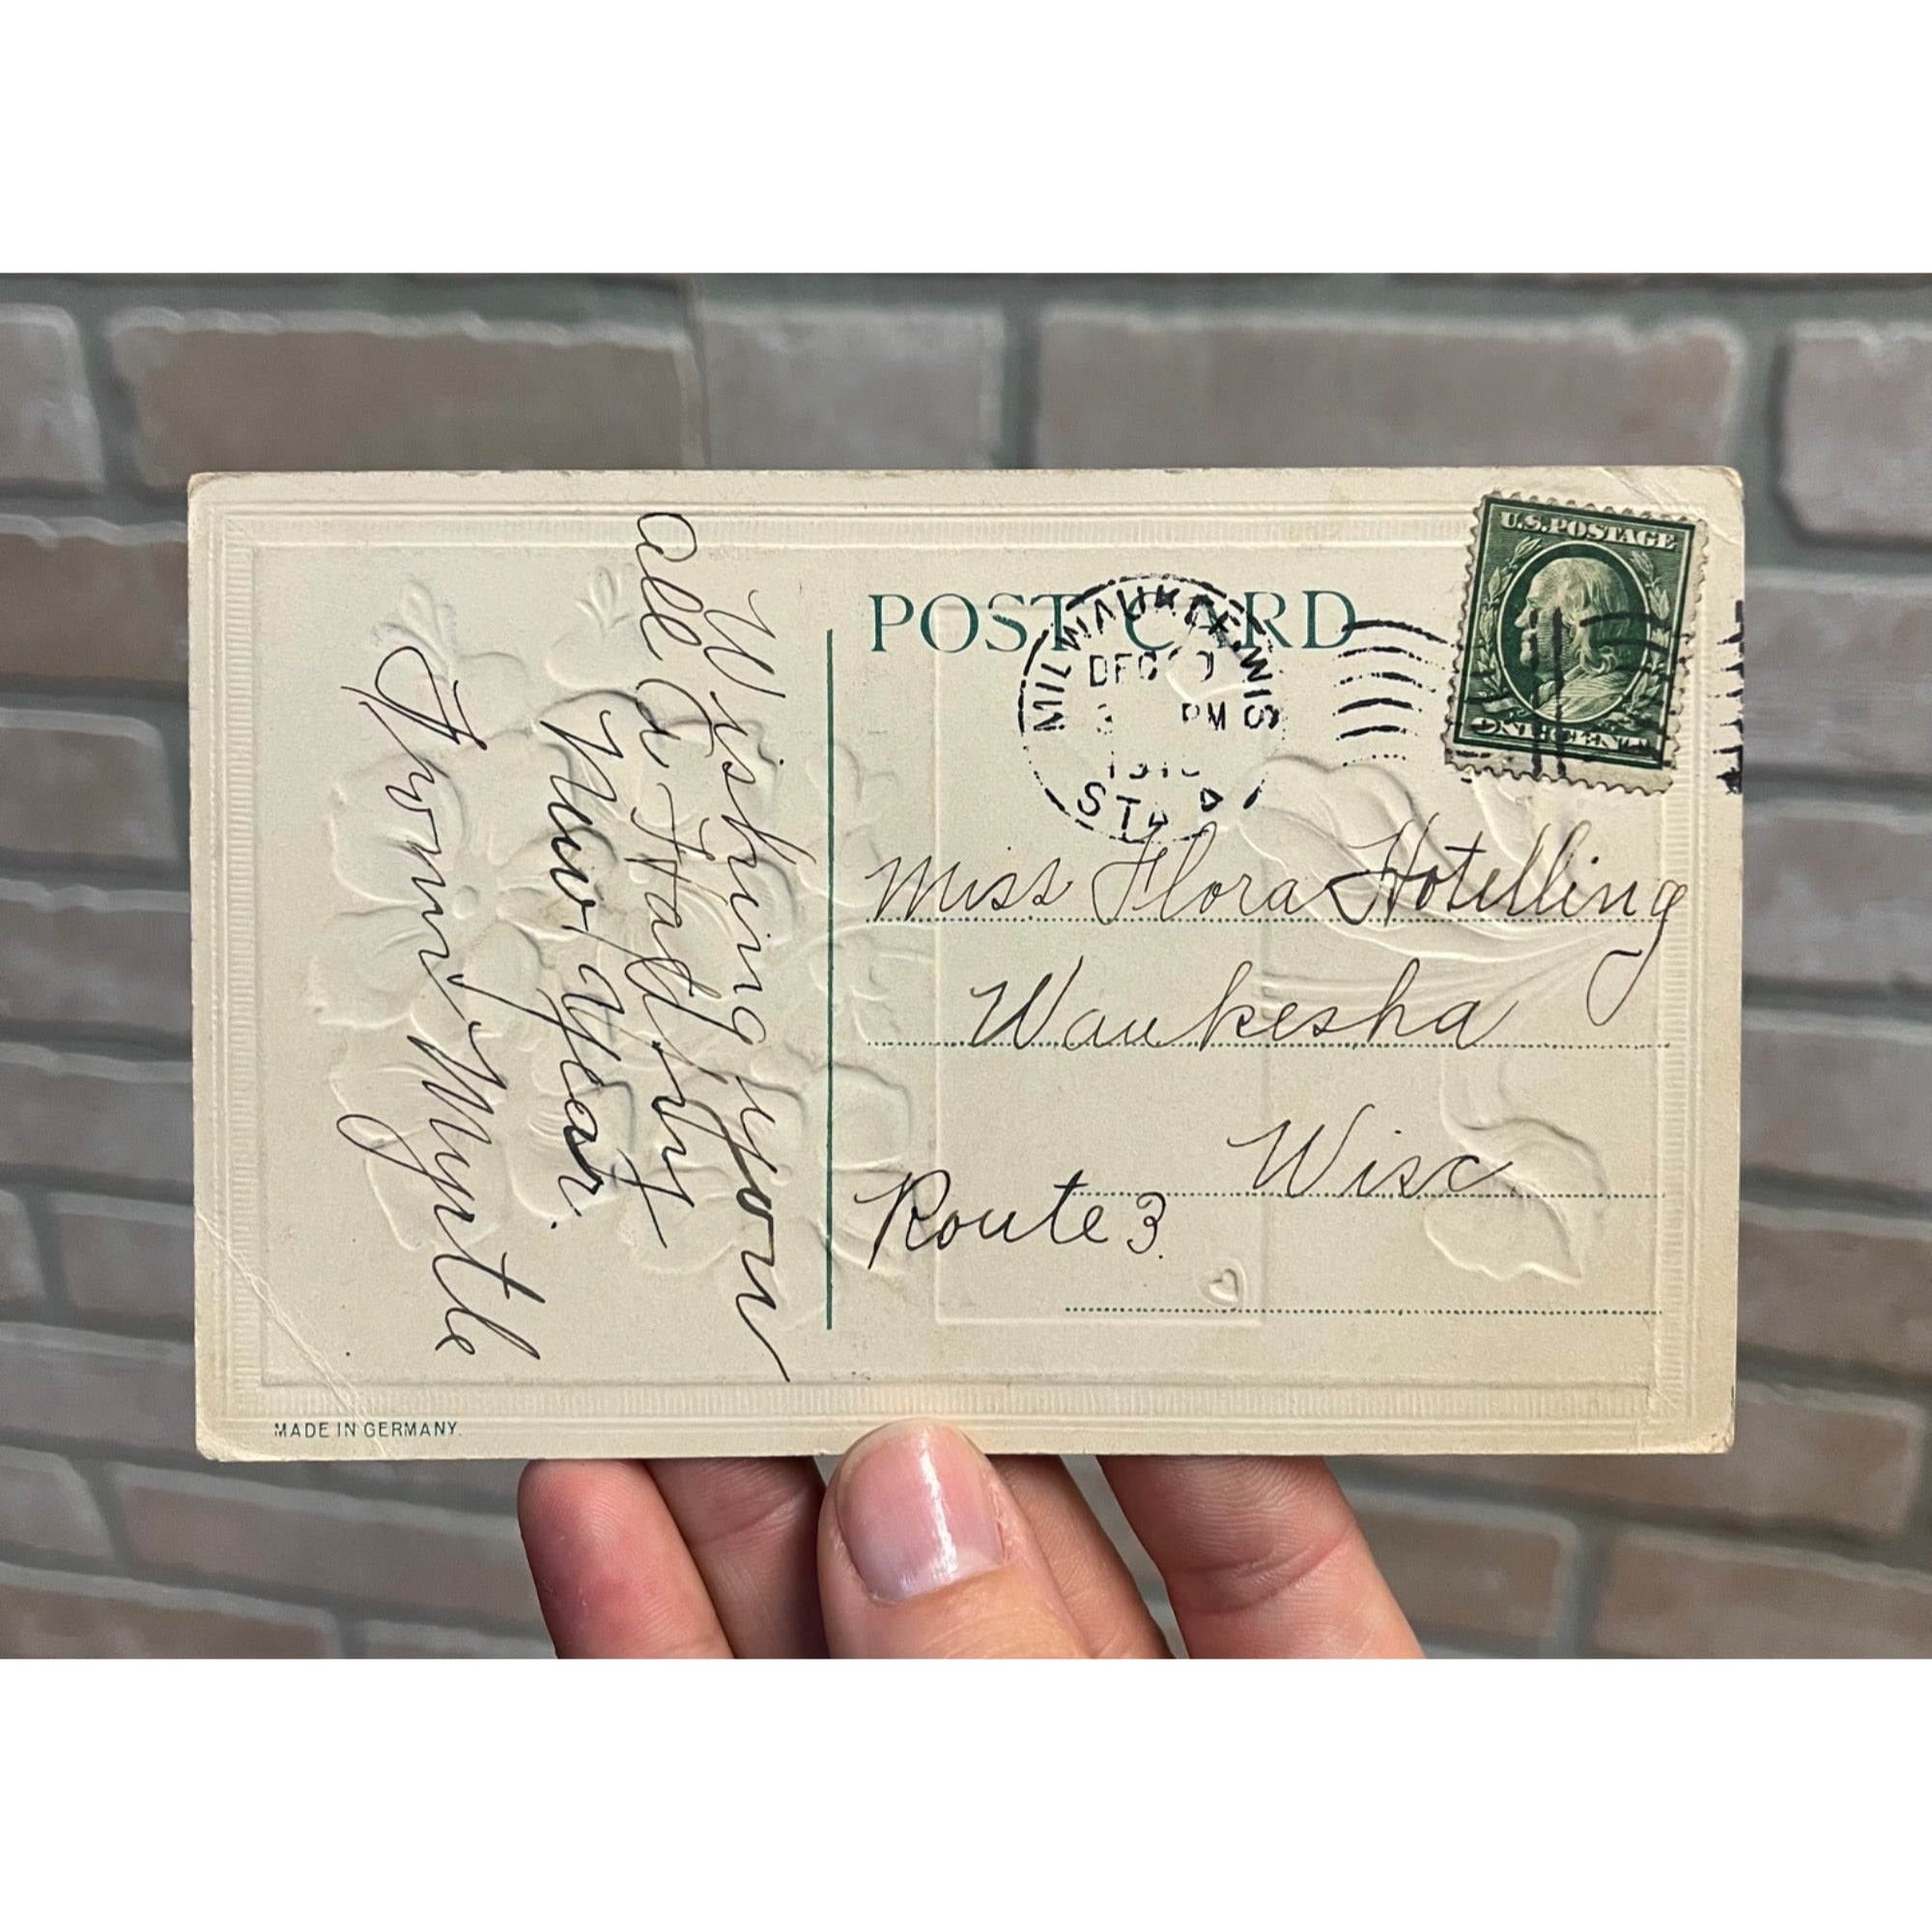 Wishing you
all a Happy
New Year.
From Myrtle
POST CARD
MILWAUKEE, WIS
DEC
3 PM
STA
U.S. POSTAGE
ONE CENT
Miss Flora Hotelling
Waukesha
Wisc
Route 3.
MADE IN GERMANY.